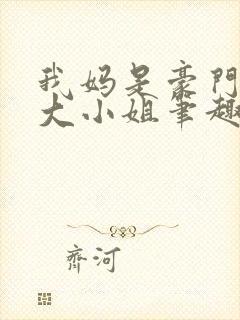 我妈是豪門
大小姐笔趣
齊河